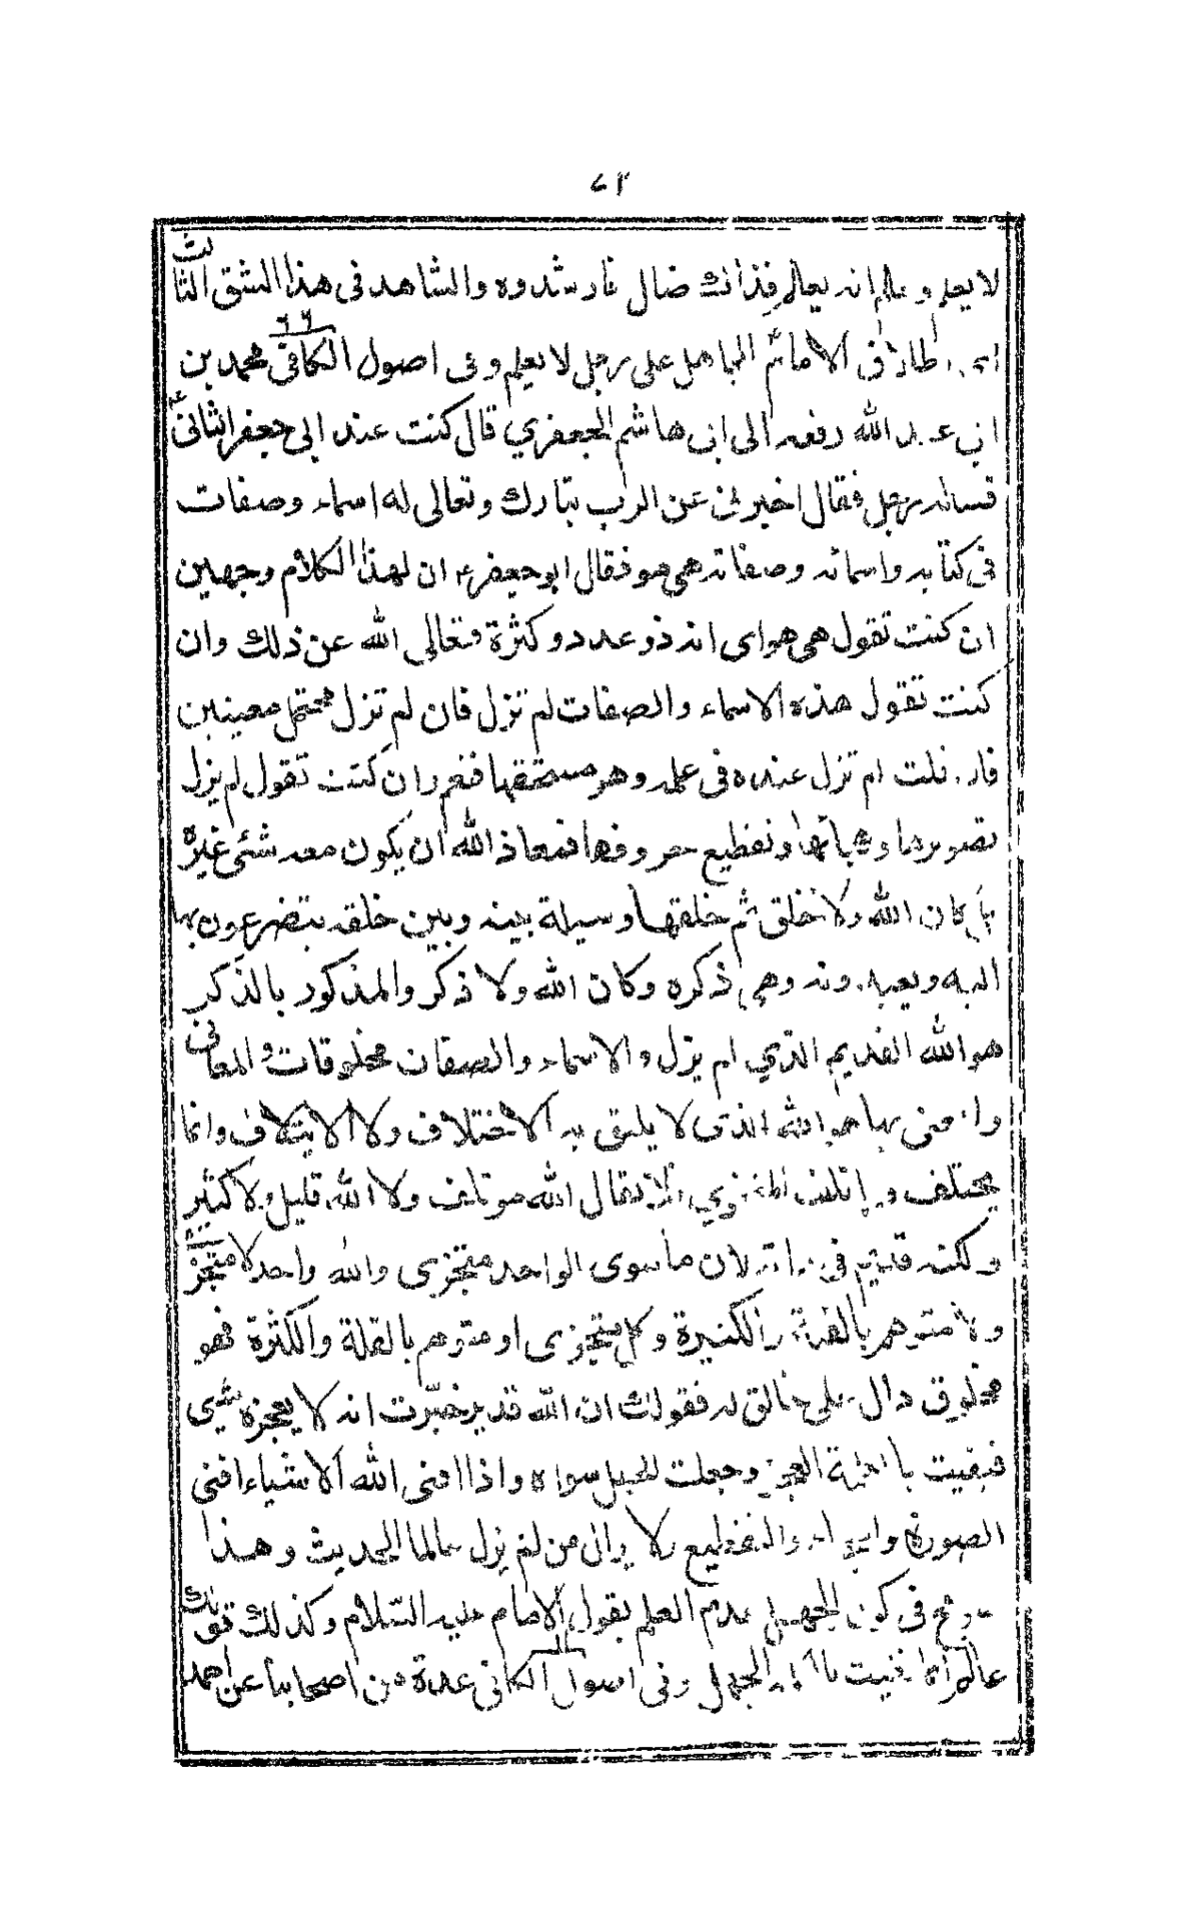 ٧٢
لا يعلم و علم انه يعلم فذاك ضال فارشدوه والشاهد فى هذا الشق الثالث
اطلاق الامام الجاهل على رجل لا يعلم وفى اصول الكافى محمد بن
ابى عبد الله رفعه الى ابى هاشم الجعفري قال كنت عند ابى جعفر الثانى ع
فساله رجل فقال اخبرنى عن الرب تبارك وتعالى له اسماء وصفات
فى كتابه واسمائه وصفاته هى هو فقال ابو جعفر ع ان لهذا الكلام وجهين
ان كنت تقول هى هو اى انه ذو عدد وكثرة فتعالى الله عن ذلك وان
كنت تقول هذه الاسماء والصفات لم تزل فان لم تزل محتمل معينين
فان قلت لم تزل عنده فى علمه وهو مستحقها فنعم وان كنت تقول لم يزل
تصويرها وهجائها وتقطيع حروفها فمعاذ الله ان يكون معه شئى غيره
بل كان الله ولا خلق ثم خلقها وسيلة بينه وبين خلقه يتضرعون بها
اليه ويعبدونه وهى ذكره وكان الله ولا ذكر والمذكور بالذكر
هو الله القديم الذي لم يزل والاسماء والصفات مخلوقات والمعانى
والمعنى بها هو الله الذى لا يليق به الاختلاف ولا الايتلاف وانما
يختلف و يأتلف المتجزي فلا يقال الله موتلف ولا الله قليل ولا كثير
ولكنه قديم فى ذاته لان ما سوى الواحد متجزى والله واحد لا متجز
ولا متوهم بالقلة والكثيرة وكل متجزى او متوهم بالقلة والكثرة فهو
مخلوق دال على خالق له فقولك ان الله قدير خبرت انه لا يعجزه شيى
فنفيت بالكلمة العجز وجعلت الجهل سواه واذا افنى الله الاشياء افنى
الصورة والهجاء والتقطيع ولا يزال من لم يزل عالما الحديث وهذا
صريح فى كون الجهل عدم العلم بقول الامام عليه السلام وكذلك قولك
عالم انما نفيت بالكلمة الجهل وفى اصول الكافى عدة من اصحابنا عن احمد